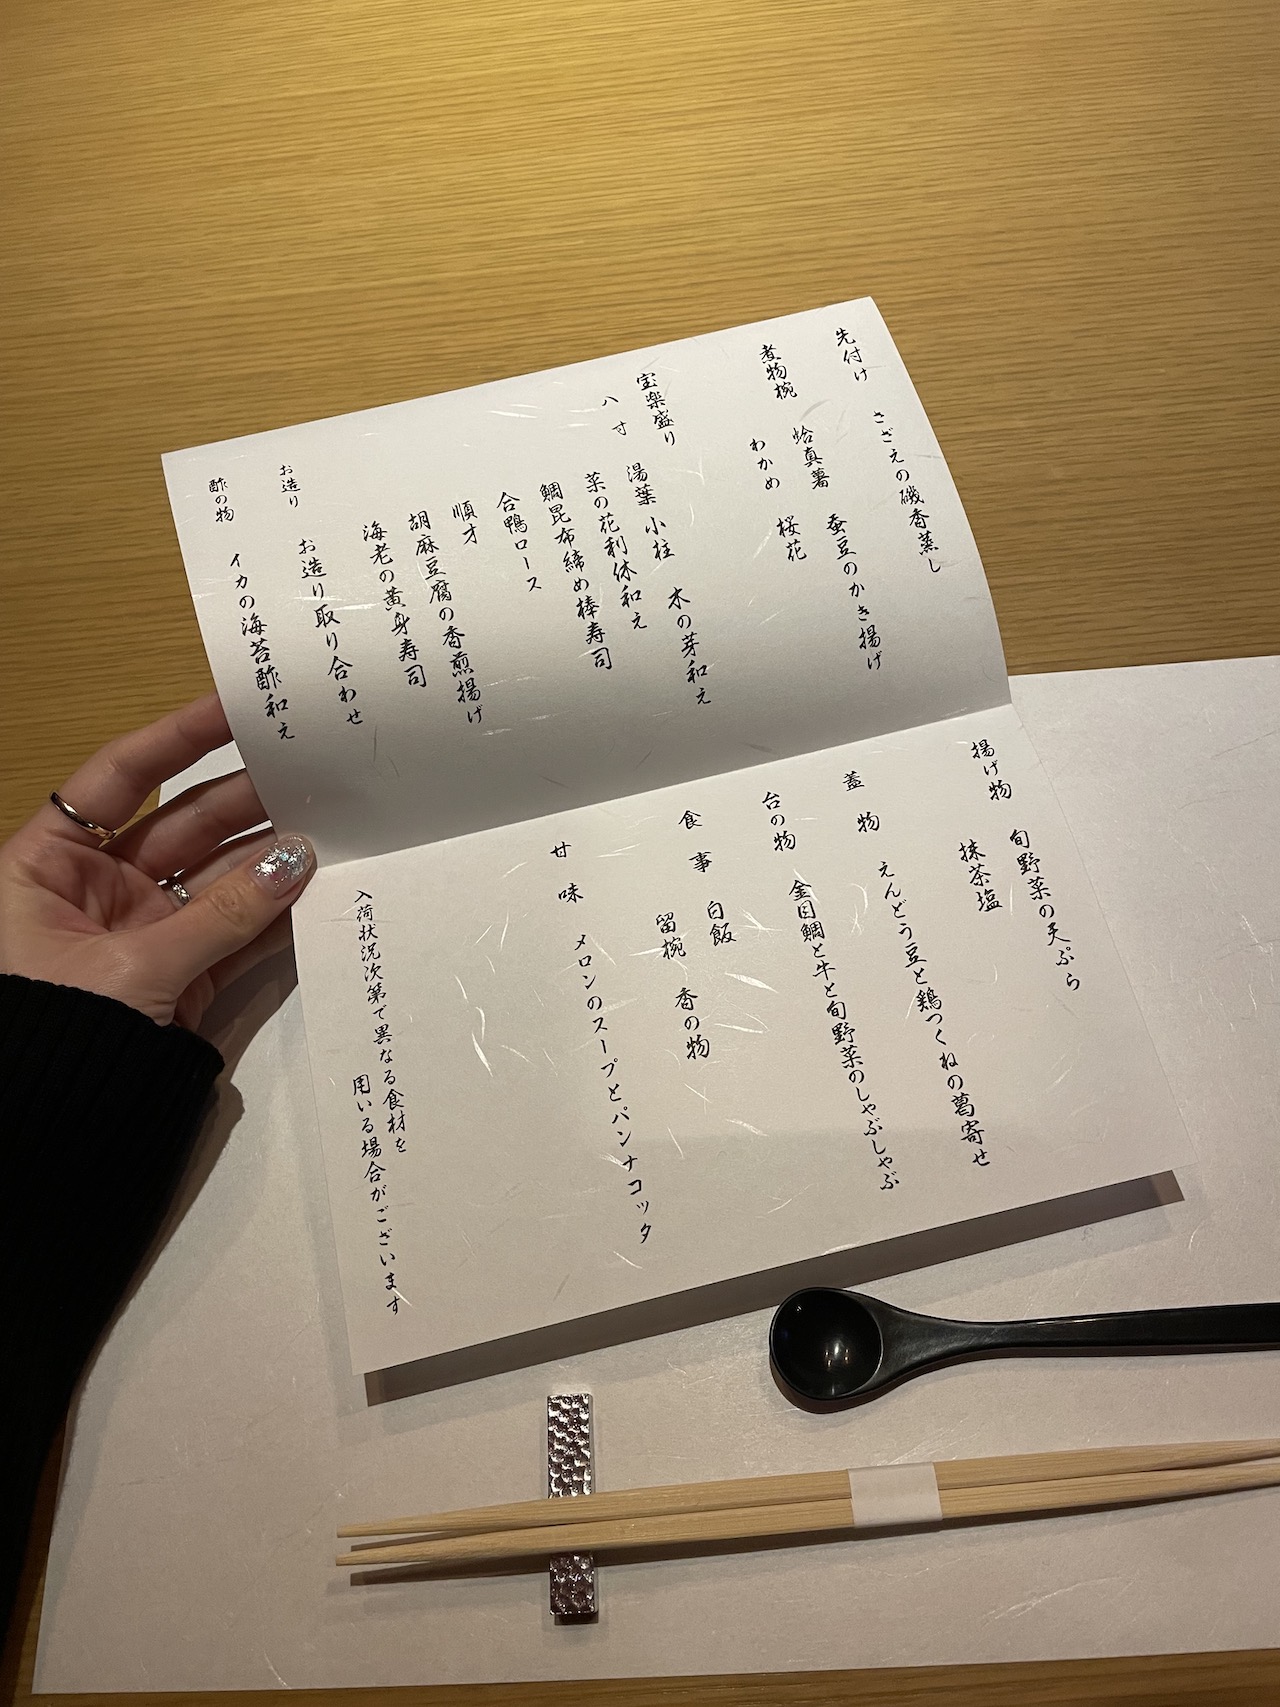 先付け
さざえの磯香蒸し
煮物椀
蛤真薯 蚕豆のかき揚げ
わかめ 桜花
宝楽盛り
八寸
湯葉 小柱 木の芽和え
菜の花利休和え
鯛昆布締め棒寿司
合鴨ロース
順才
胡麻豆腐の香煎揚げ
海老の黄身寿司
お造り
お造り取り合わせ
酢の物
イカの海苔酢和え
揚げ物
旬野菜の天ぷら
抹茶塩
蓋物
えんどう豆と鶏つくねの葛寄せ
台の物
金目鯛と牛と旬野菜のしゃぶしゃぶ
食事
白飯
留椀 香の物
甘味
メロンのスープとパンナコッタ
入荷状況次第で異なる食材を
用いる場合がございます